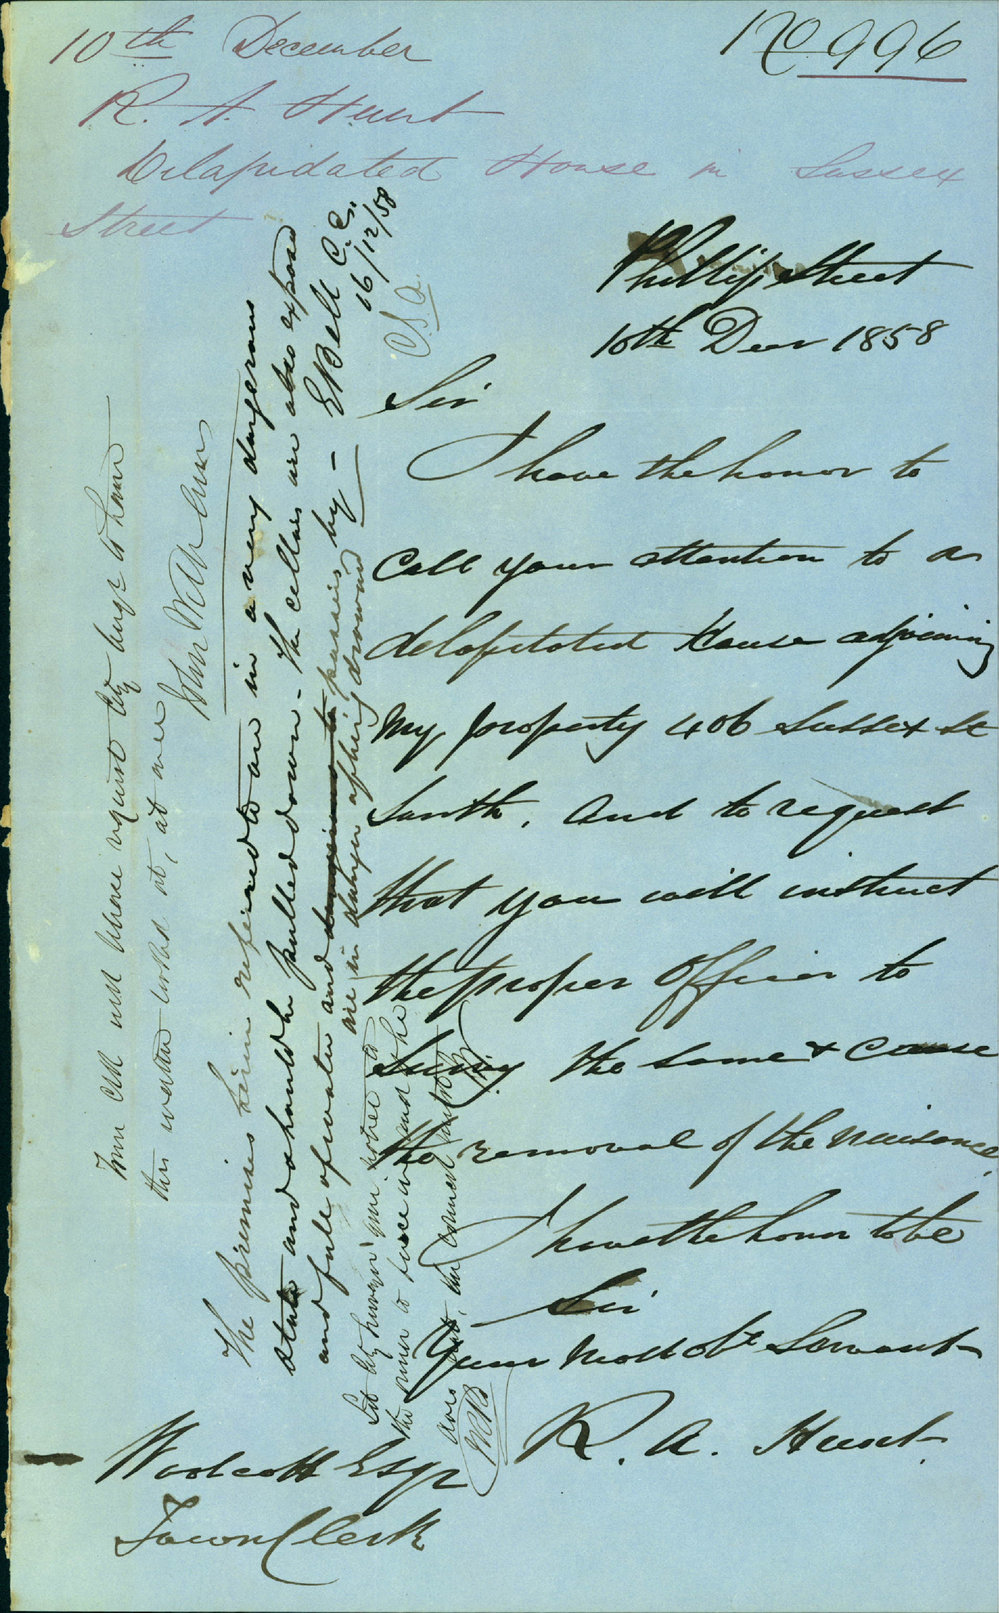 10th December
No 996
R. A. Hunt
Dilapidated House in Sussex
Street
Phillip Street
10th Decr 1858
Sir
I have the honor to
Call your attention to a
delapitated House adjoining
My property 406 Sussex St
South, and to request
that you will instruct
the proper Officer to
Survey the same & cause
the removal of the nuisance
I have the honor to be
Sir
Your Most Obt Servant
R. A. Hunt
Woolcott Esqr
Town Clerk
Town Clk will please request City Surgr to have
this matter looked at, at once
The premises herein refered to are in a very dangerous
state and should be pulled down - the cellars are also exposed
and full of water and dangerous to passers by -
are in danger of being drowned
E Bell C.S.
16/12/58
C.S.O.
Let City Surveyor give notice to
the owner to